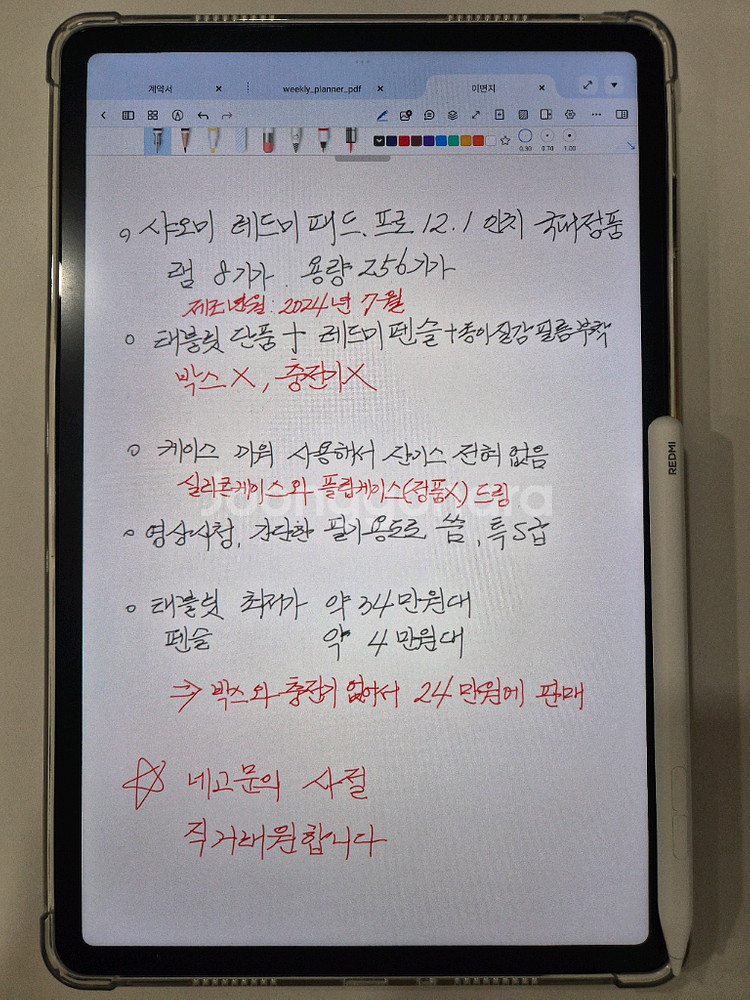 계약서
weekly_planner_pdf
이면지
0.30 0.70 1.00
샤오미 레드미 패드. 프로 12.1 인치 국내정품
램 8기가. 용량 256기가
제조년월: 2024년 7월
태블릿 단품 + 레드미펜슬+종이질감필름부착
박스X, 충전기X
케이스 끼워 사용해서 잔기스 전혀 없음
실리콘케이스와 플립케이스(정품X) 드림
영상시청, 간단한 필기용도로 씀, 특S급
태블릿 최저가 약 34만원대
펜슬 약 4만원대
⇒ 박스와 충전기 없어서 24만원에 판매
☆ 네고문의 사절
직거래원합니다
REDMI